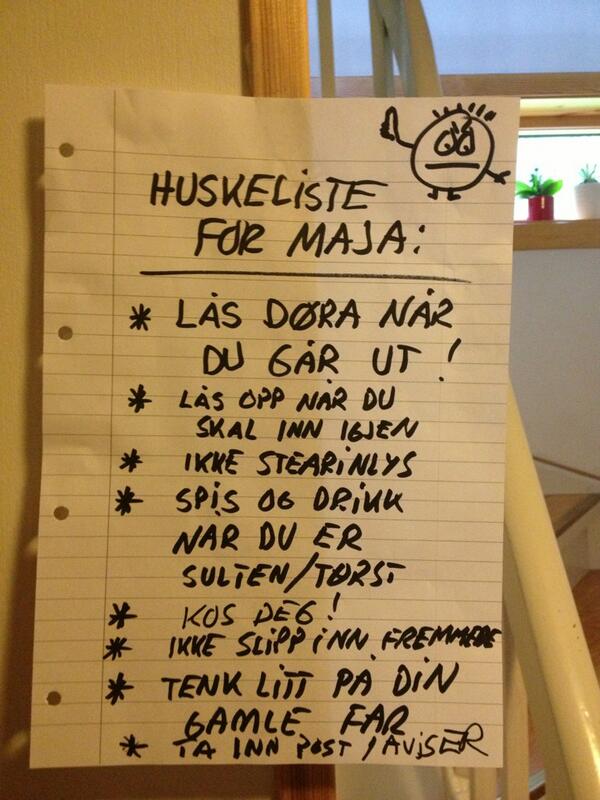 HUSKELISTE
FOR MAJA:
* LÅS DØRA NÅR
DU GÅR UT!
* LÅS OPP NÅR DU
SKAL INN IGJEN
* IKKE STEARINLYS
* SPIS OG DRIKK
NÅR DU ER
SULTEN/TØRST
* KOS DEG!
* IKKE SLIPP INN FREMMEDE
* TENK LITT PÅ DIN
GAMLE FAR
* TA INN POST/AVISER